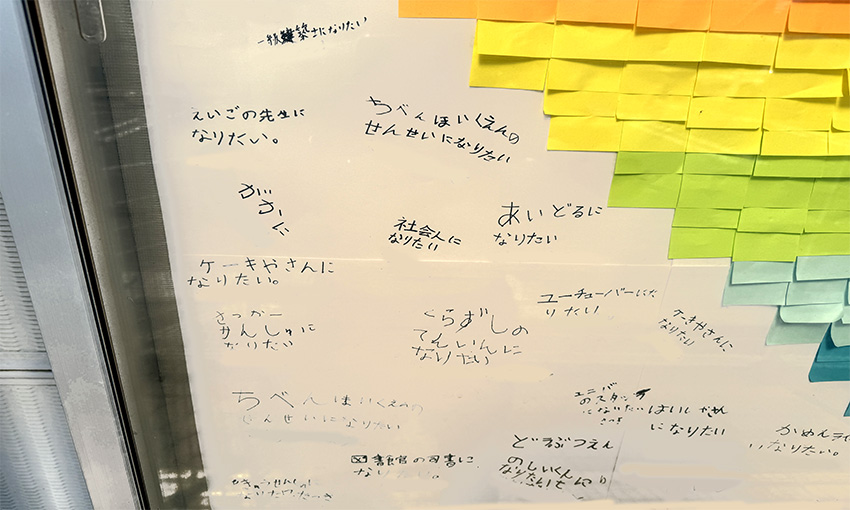 築士になりたい
えいごの先生に
なりたい。
ちべんほいくえんの
せんせいになりたい
がかに
社会人に
なりたい
あいどるに
なりたい
ケーキやさんに
なりたい。
さっかー
せんしゅに
なりたい
くらずしの
てんいんに
なりたい
ユーチューバーにな
りたい
ケーキやさんに
なりたい
ちべんほいくえんの
せんせいになりたい
ユニバ
のスタッフ
になりたい
はいしゃさん
になりたい
かめんライ
なりたい。
どうぶつえん
のしいくいん
なりたい
の司書に
なりたい。